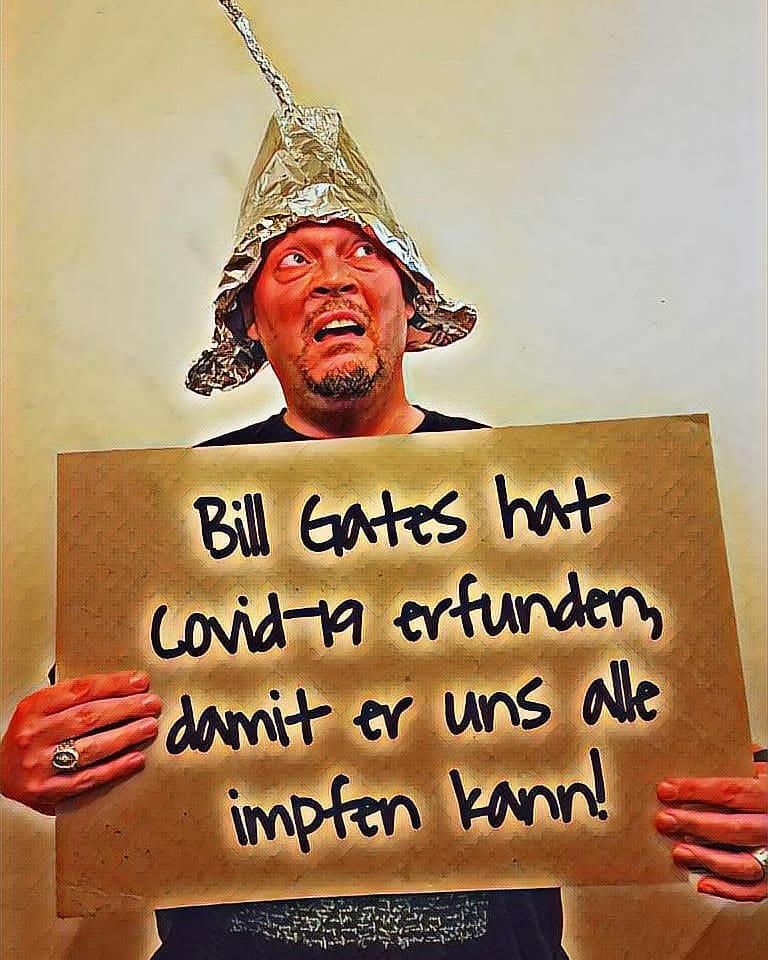 Bill Gates hat
Covid-19 erfunden,
damit er uns alle
impfen kann!